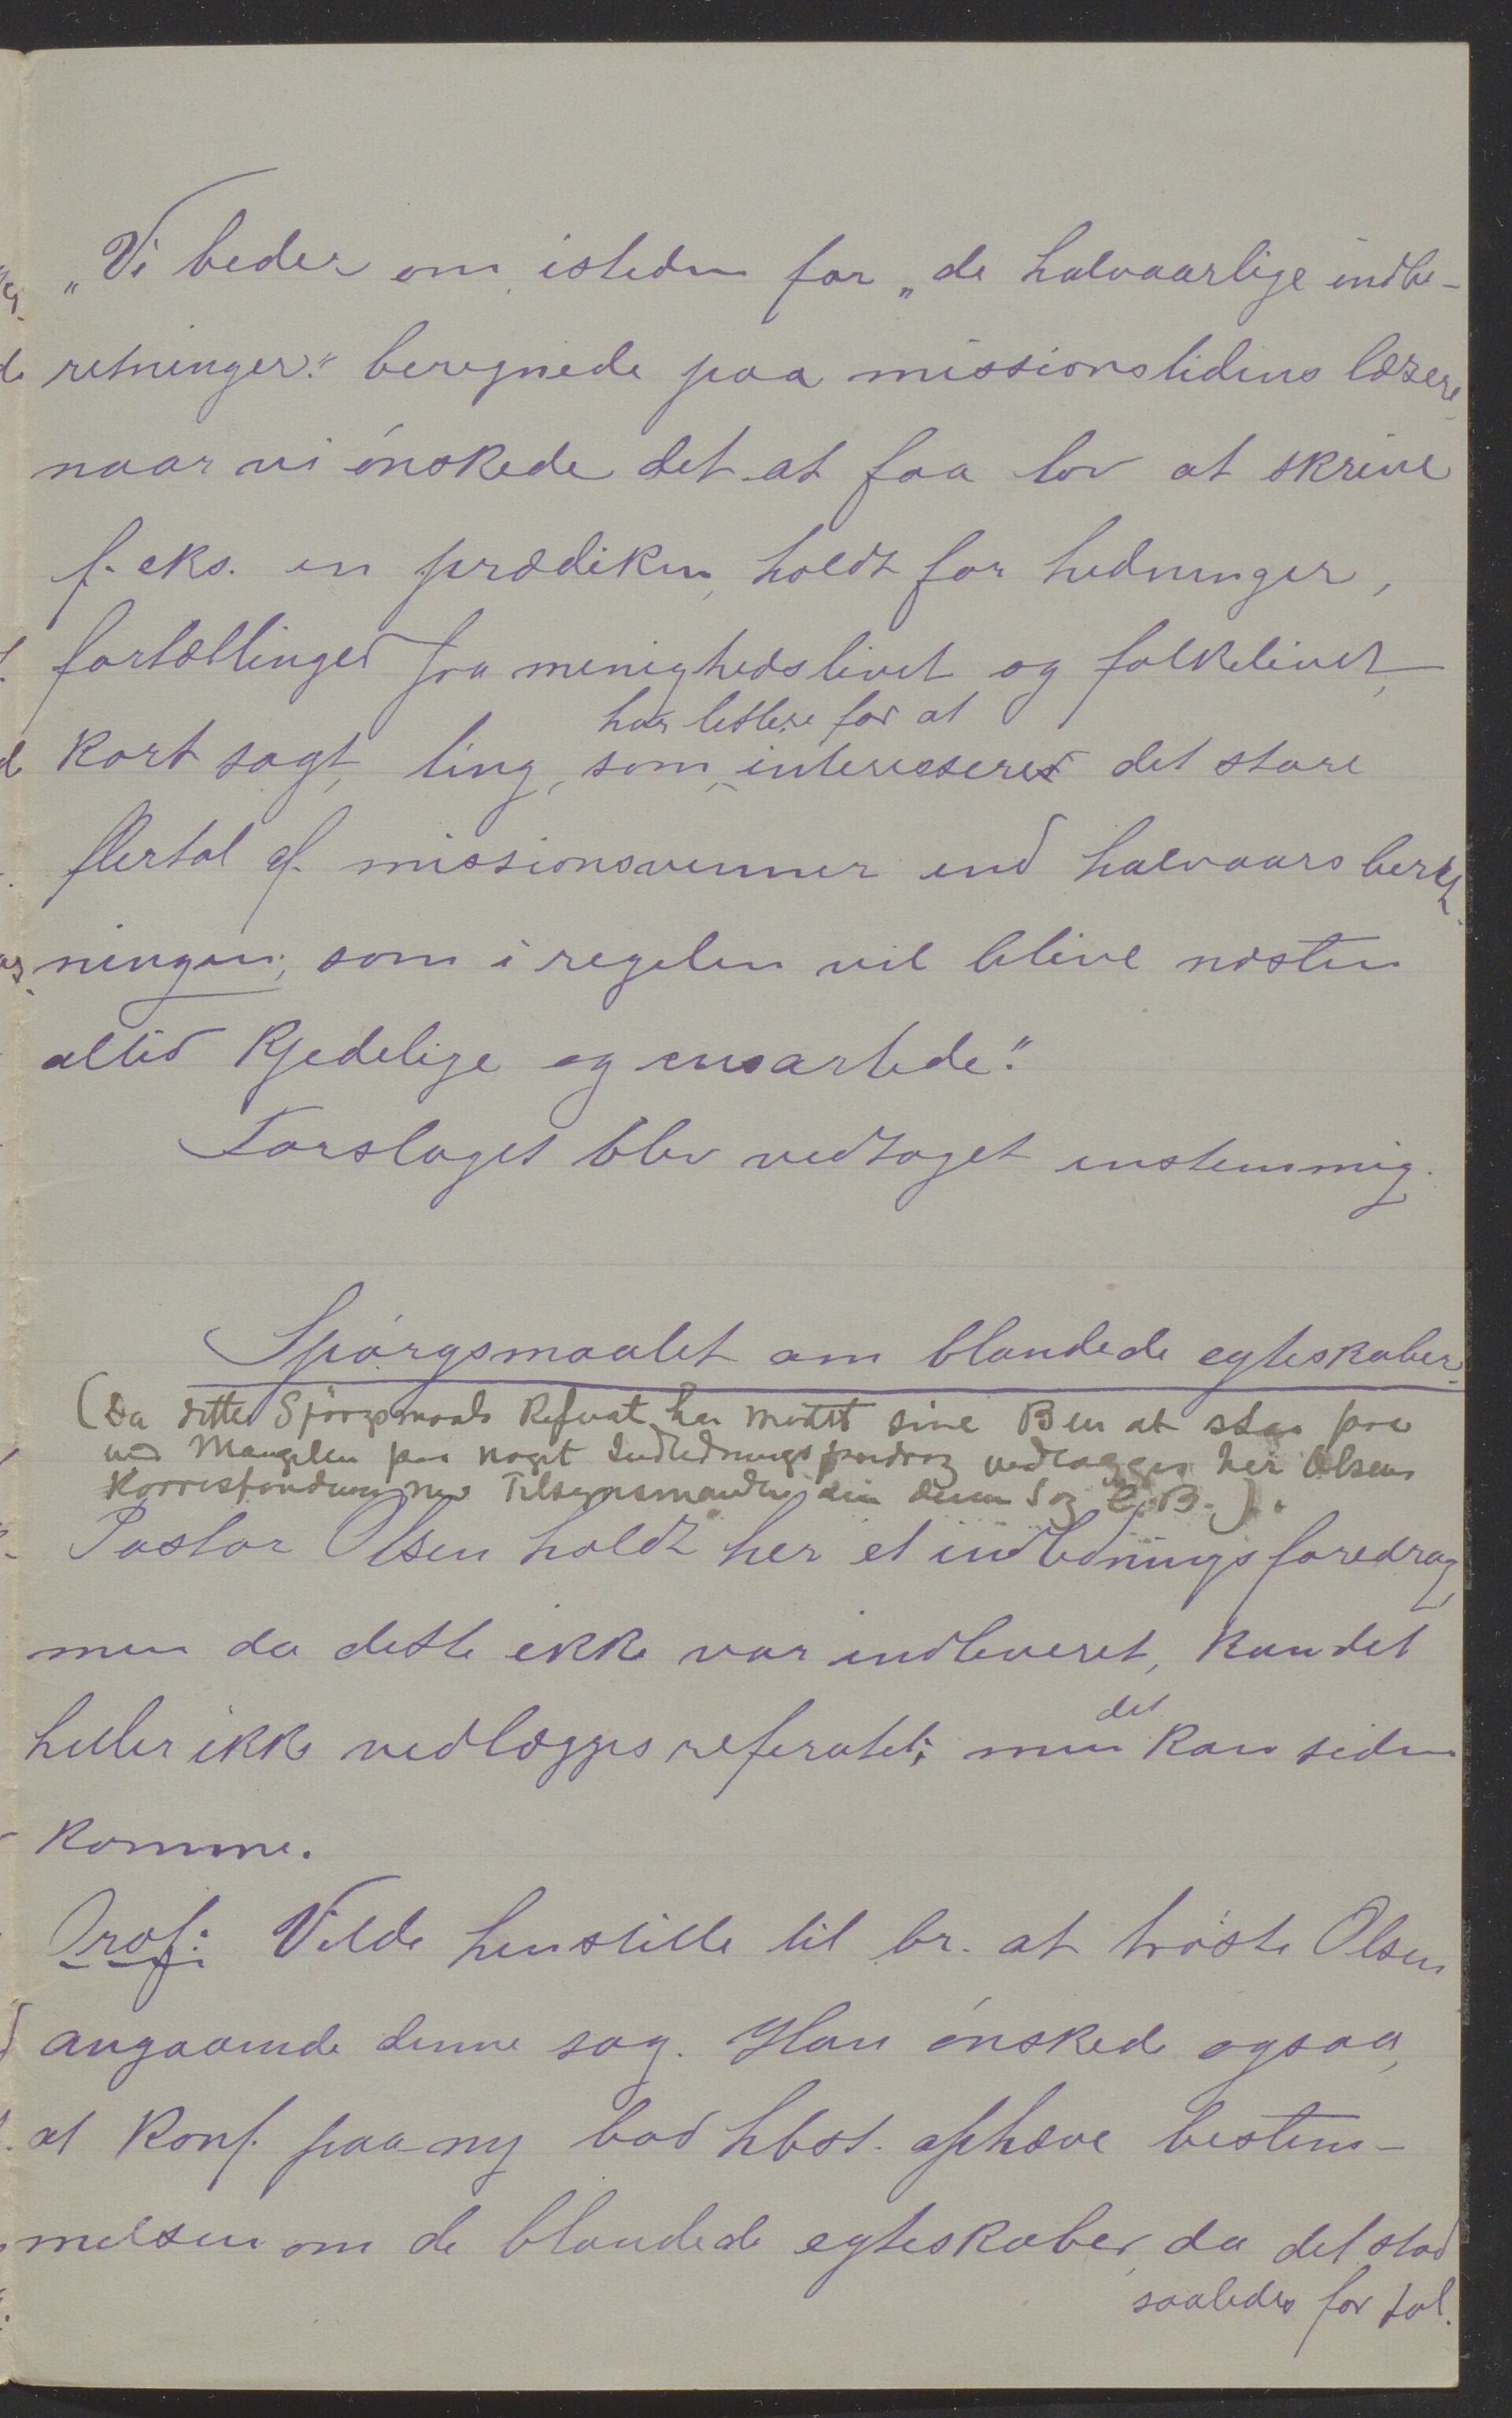 „Vi beder om istedn for „de halvaarlige indbe-
retninger“ beregnede paa missionstidens læsere,
naar vi ónskede det at faa lov at skrive
f. eks. en prædiken, holdt for hedninger,
fortællinger fra menighedslivet og folkelivet,
har lettere for at
kort sagt, ting, som interesserer det store
flertal af missionsvenner end halvaarsberet-
ningen, som i regelen vil blive næsten
altid kjedelige og ensartede.“
Forslaget blev vedtaget enstemmig.
Spórgsmaalet om blandede egteskaber.
(Da dette Spörgsmaals Referat har mistet sine Ben at staa paa
ved Mangelen paa noget Indledningsforedrag vedlægges her Olsens
Korrespondence med Tilsynsmanden i denne Sag C.B.).
Pastor Olsen holdt her et indledningsforedrag,
men da dette ikke var indleveret, kan det
heller ikke vedlægges referatet; men det kan siden
komme.
Prof: Vilde henstille til br. at tróste Olsen
angaaende denne sag. Han ónskede ogsaa,
at konf. paa ny bad hbst. ophæve bestem-
melsen om de blandede egteskaber, da det stod
saaledes for tal.